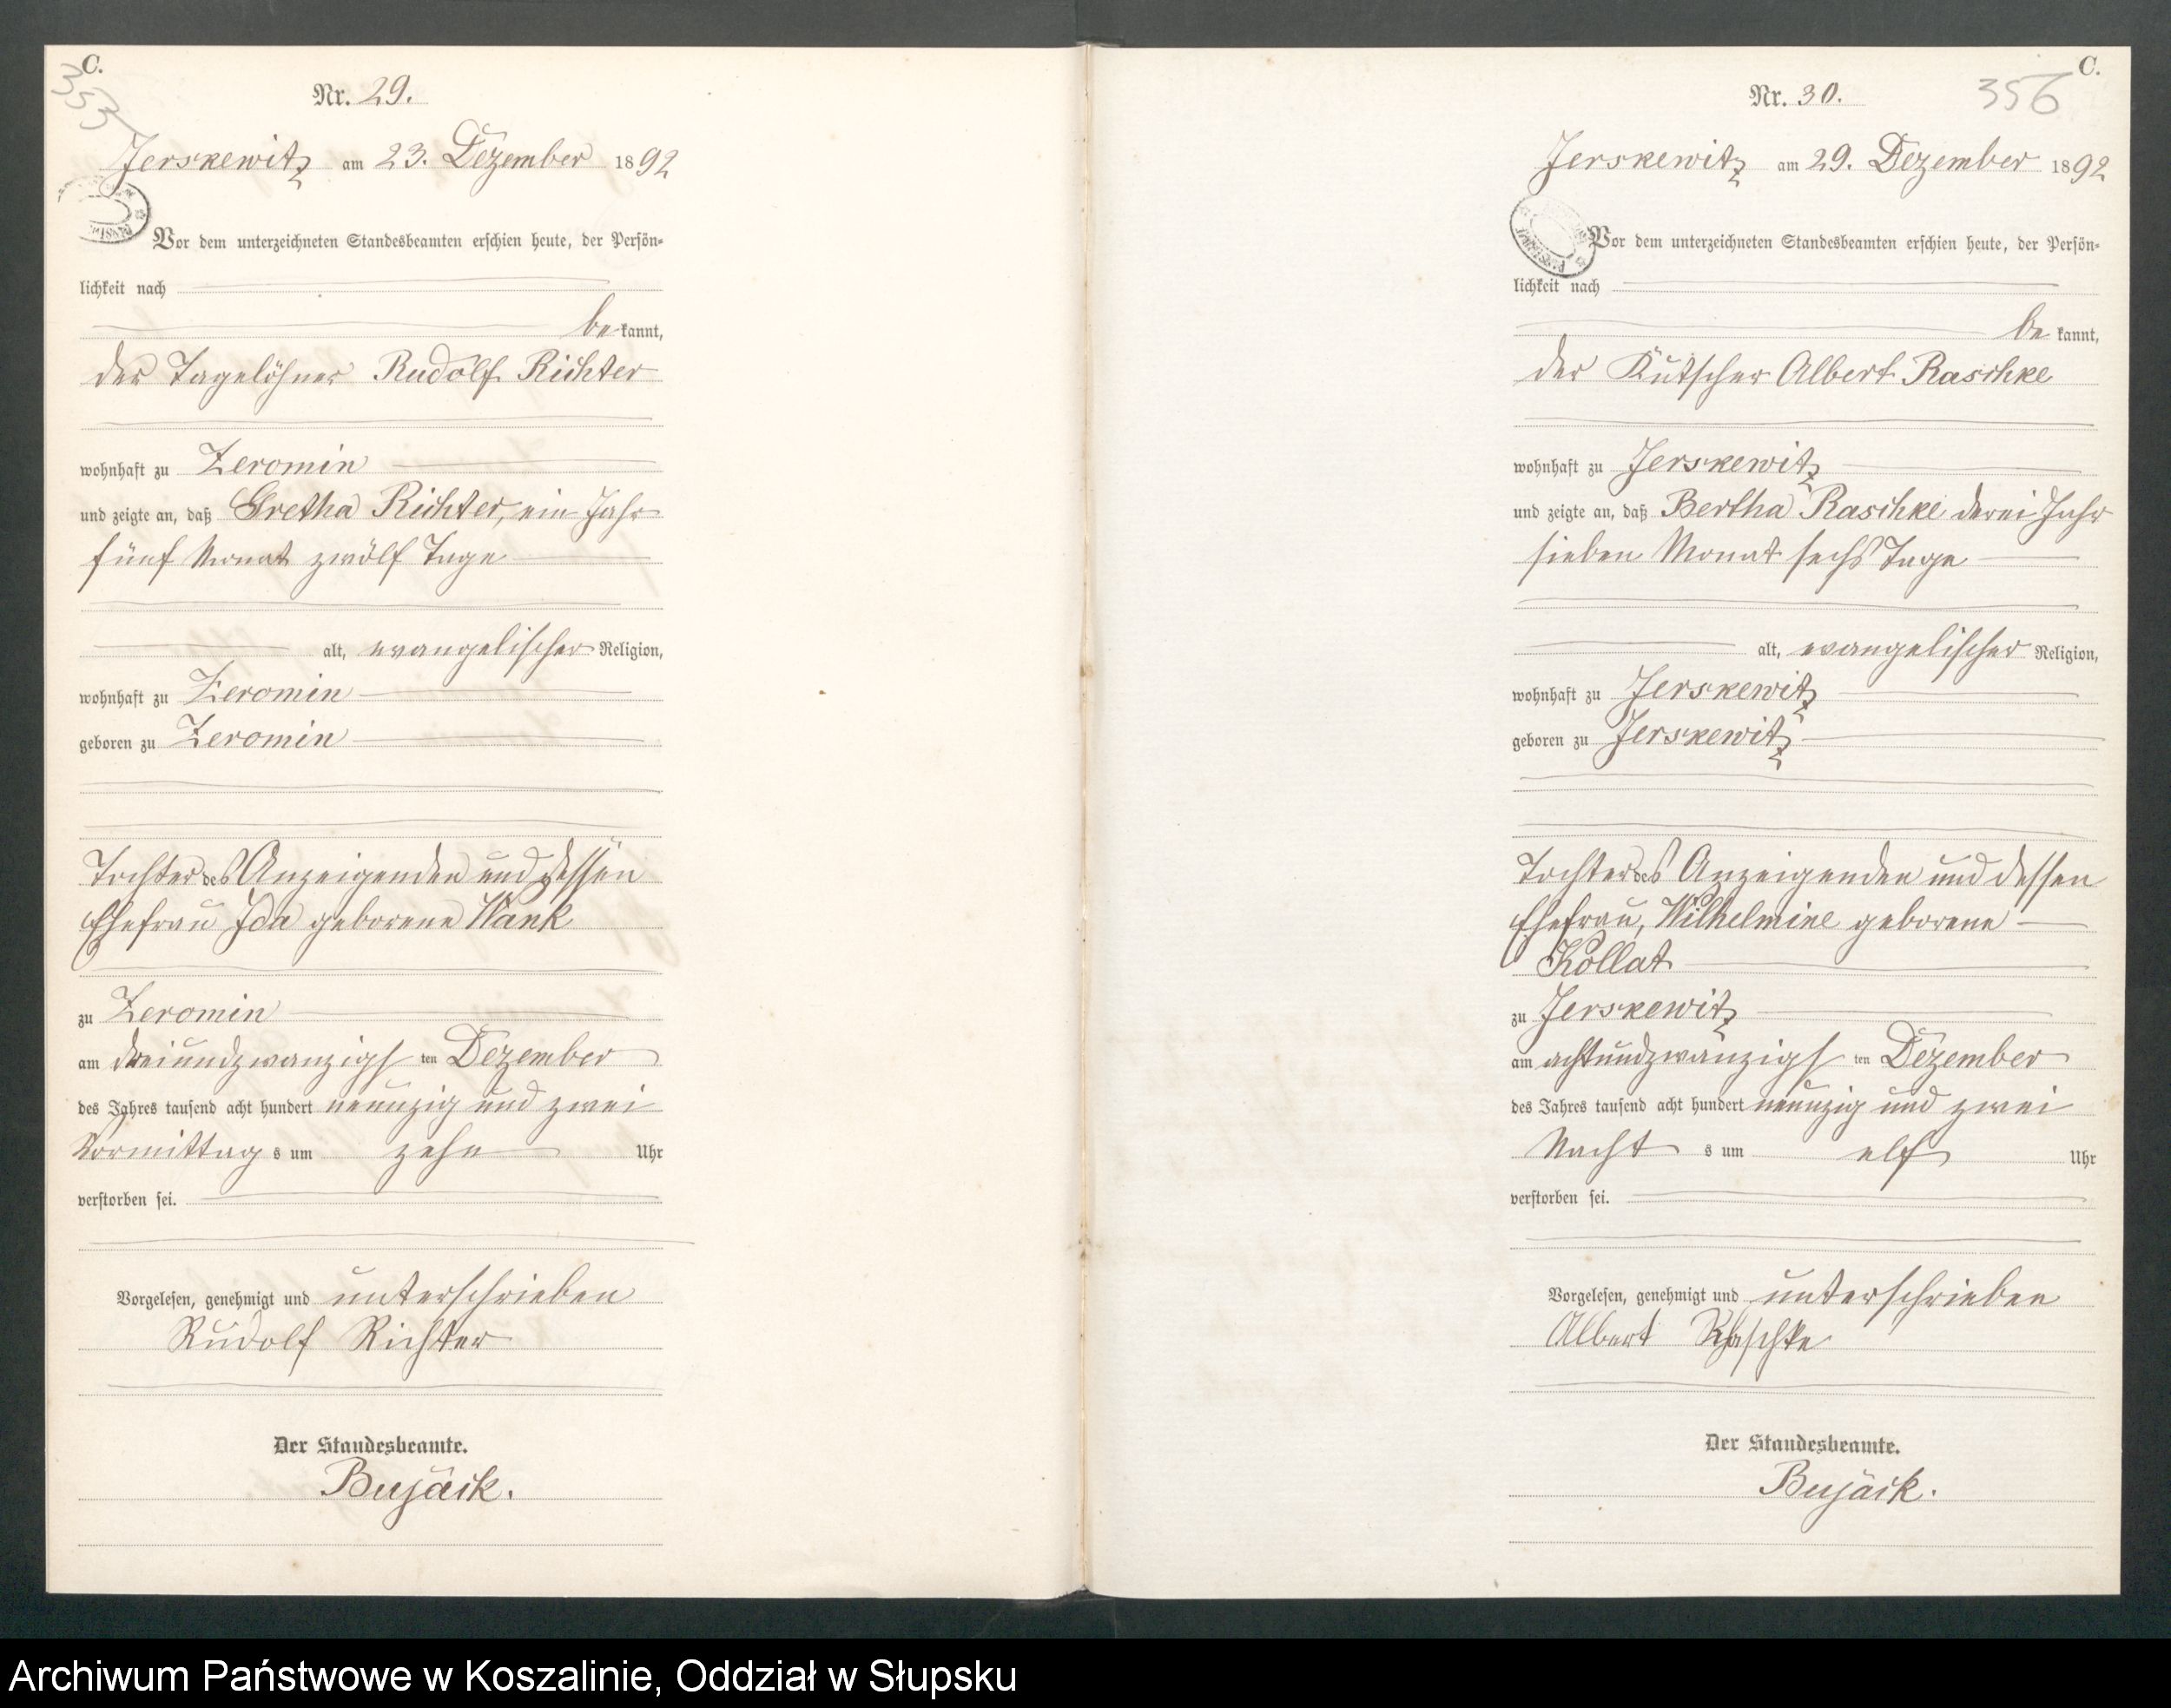 C.
353
Nr. 29.
Jerskewitz am 23. Dezember 1892
Vor dem unterzeichneten Standesbeamten erschien heute, der Persön-
lichkeit nach
bekannt,
der Tagelöhner Rudolf Richter
wohnhaft zu Zeromin
und zeigte an, daß Gretha Richter, ein Jahr
fünf Monat zwölf Tage
alt, evangelischer Religion,
wohnhaft zu Zeromin
geboren zu Zeromin
Tochter des Anzeigenden und dessen
Ehefrau Ida geborene Wank
zu Zeromin
am dreiundzwanzigsten Dezember
des Jahres tausend acht hundert neunzig und zwei
Vormittags um zehn Uhr
verstorben sei.
Vorgelesen, genehmigt und unterschrieben
Rudolf Richter
Der Standesbeamte.
Bujack.
C.
356
Nr. 30.
Jerskewitz am 29. Dezember 1892
Vor dem unterzeichneten Standesbeamten erschien heute, der Persön-
lichkeit nach
bekannt,
der Kutscher Albert Raschke
wohnhaft zu Jerskewitz
und zeigte an, daß Bertha Raschke drei Jahr
sieben Monat sechs Tage
alt, evangelischer Religion,
wohnhaft zu Jerskewitz
geboren zu Jerskewitz
Tochter des Anzeigenden und dessen
Ehefrau, Wilhelmine geborene
Kollat
zu Jerskewitz
am achtundzwanzigsten Dezember
des Jahres tausend acht hundert neunzig und zwei
Nachts um elf Uhr
verstorben sei.
Vorgelesen, genehmigt und unterschrieben
Albert Raschke
Der Standesbeamte.
Bujack.
Archiwum Państwowe w Koszalinie, Oddział w Słupsku